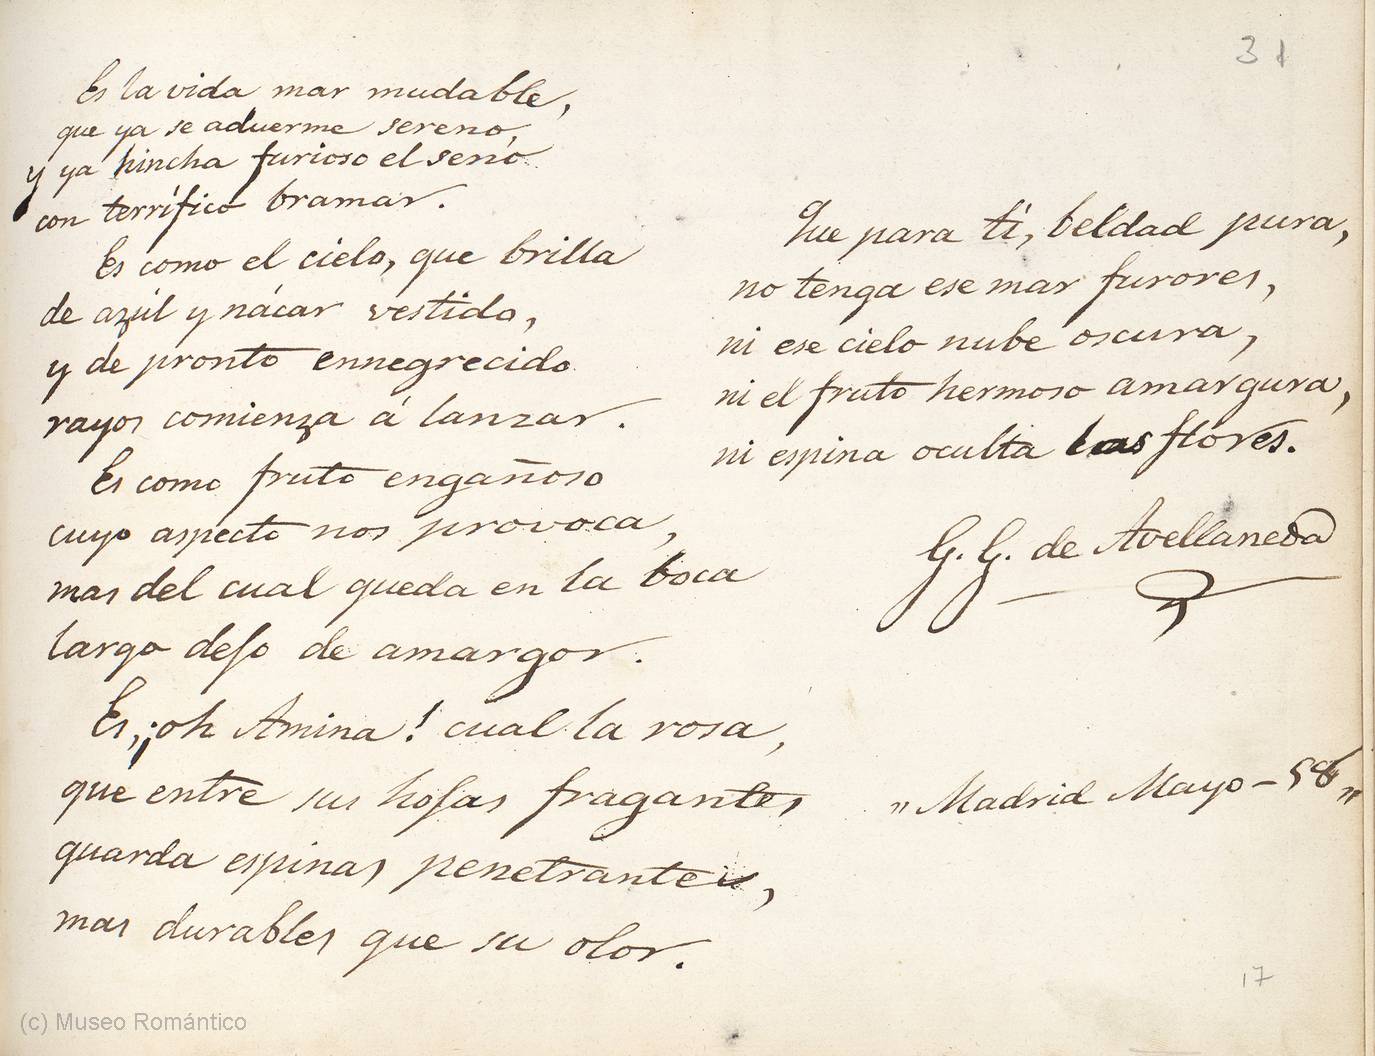 31
Es la vida mar mudable,
que ya se aduerme sereno,
y ya hincha furioso el seno
con terrífico bramar.
Es como el cielo, que brilla
de azúl y nácar vestido,
y de pronto ennegrecido
rayos comienza á lanzar.
Es como fruto engañoso
cuyo aspecto nos provoca,
mas del cual queda en la boca
largo dejo de amargor.
Es, ¡oh Amina! cual la rosa,
que entre sus hojas fragantes
guarda espinas penetrantes,
mas durables que su olor.
Que para tí, beldad pura,
no tenga ese mar furores,
ni ese cielo nube oscura,
ni el fruto hermoso amargura,
ni espina oculta las flores.
G. G. de Avellaneda
„Madrid Mayo-58„
17
(c) Museo Romántico